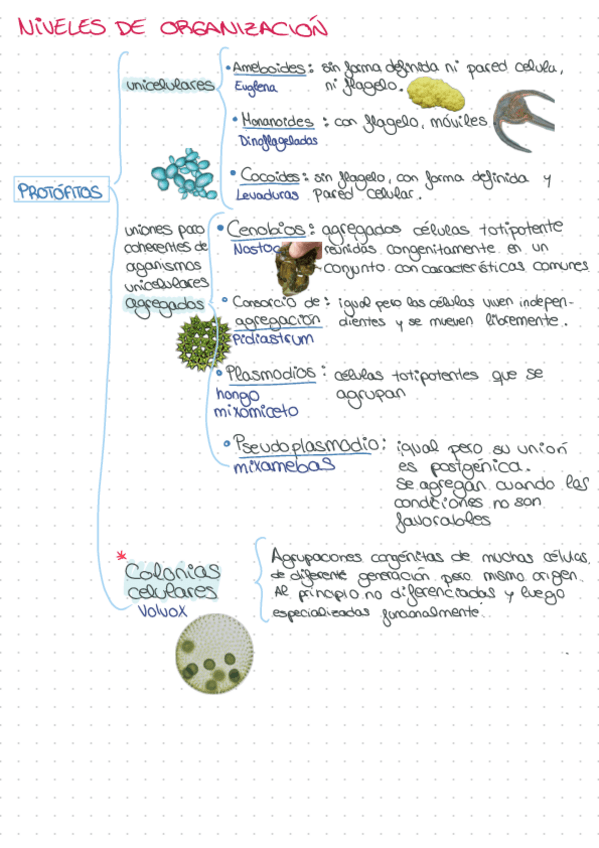 NIVELES DE ORGANIZACIÓN
PROTÓFITOS
unicelulares
• Ameboides: sin forma definida ni pared celula,
Euglena ni flagelo.
• Monanoides: con flagelo, móviles.
Dinoflageladas
• Cocoides: sin flagelo, con forma definida y
Levaduras pared celular.
uniones poco
coherentes de
oganismos
unicelulares
agregados
• Cenobios: agregados células totipotente
Nostoc reunidas congenitamente en un
conjunto con características comunes
• Consorcio de: igual pero las células viven indepen-
agregación dientes y se mueven libremente.
Pidiastrum
• Plasmodios: células totipotentes que se
hongo agrupan
mixomiceto
• Pseudoplasmodio: igual pero su unión
mixamebas es postgénica.
Se agregan cuando las
condiciones no son
favorables
* Colonias
celulares
Volvox
Agrupaciones congénitas de muchas células,
de diferente generación pero mismo origen.
Al principio no diferenciadas y luego
especializadas funcionalmente.